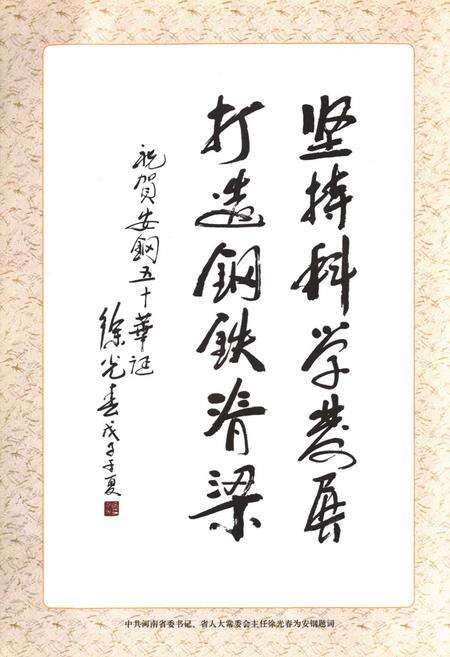 坚持科学发展
打造钢铁脊梁
祝賀安鋼五十華誕
徐光春戊子夏
中共河南省委书记、省人大常委会主任徐光春为安钢题词